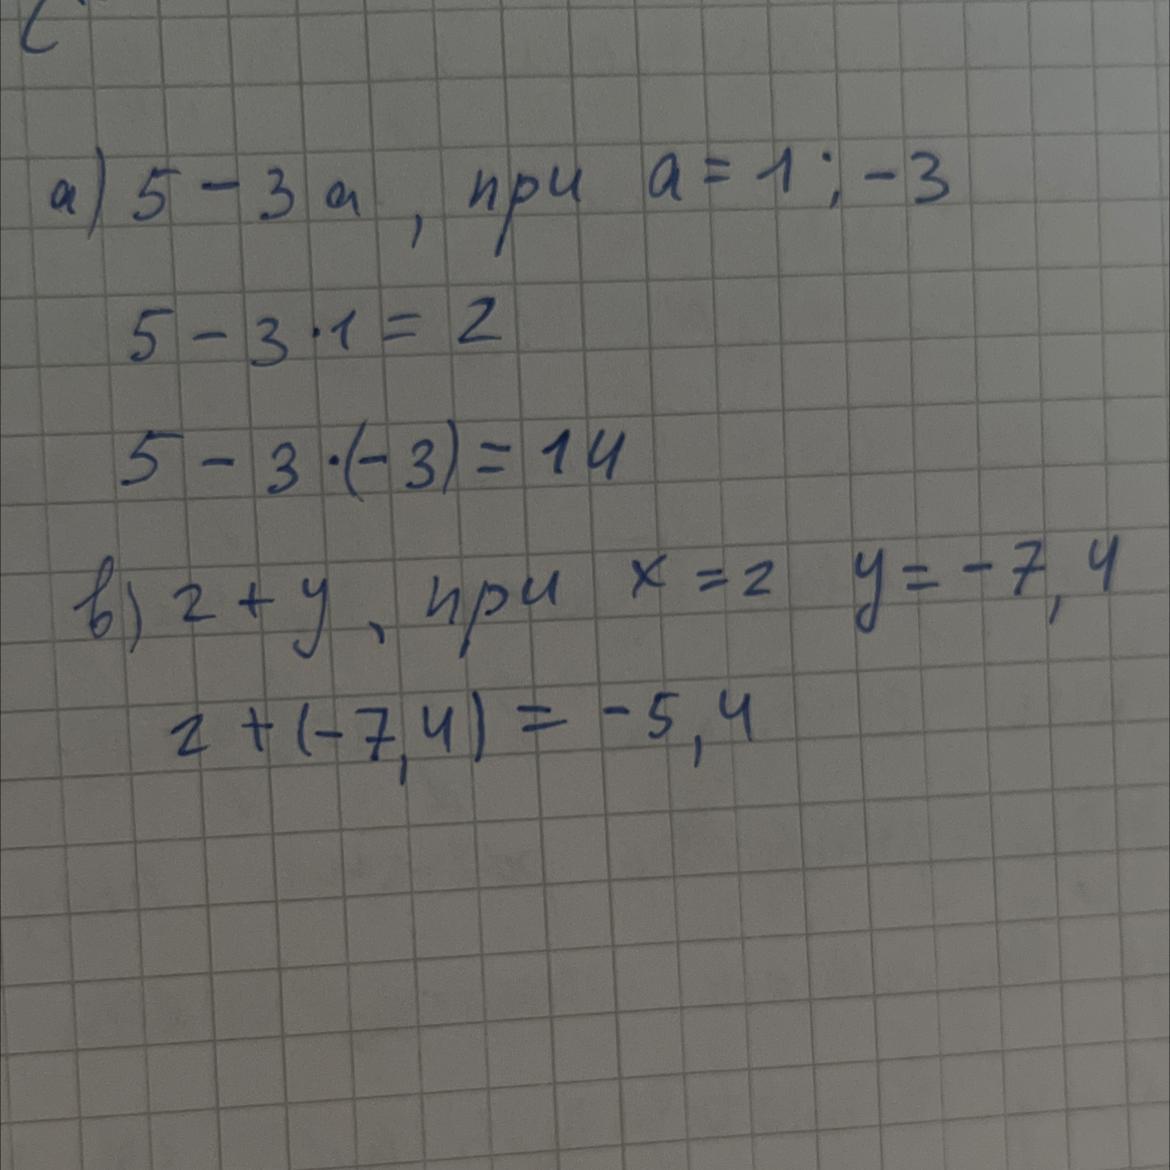 а) 5 - 3a, при a = 1; -3
5 - 3 · 1 = 2
5 - 3 · (-3) = 14
в) 2 + y, при x = 2 y = -7,4
2 + (-7,4) = -5,4